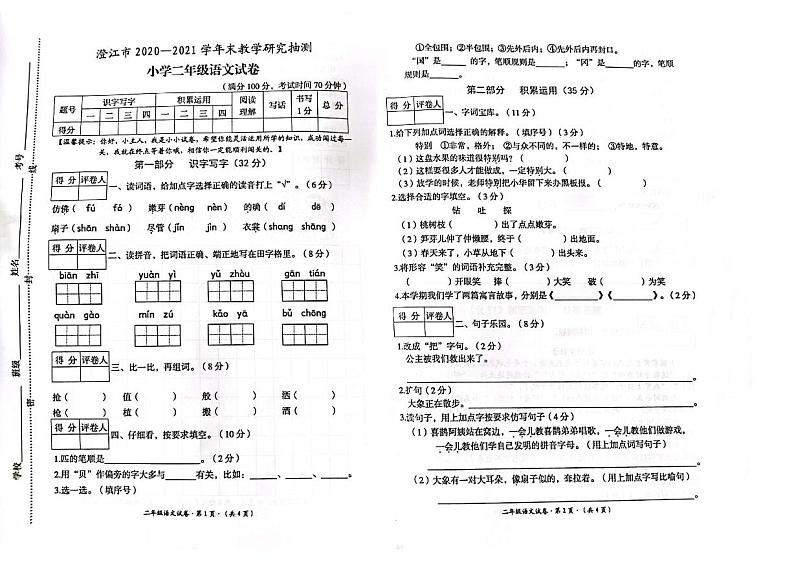 澄江市 2020—2021 学年末教学研究抽测
小学二年级语文试卷
（满分 100 分，考试时间 70 分钟）
题号 识字写字 积累运用 阅读理解 写话 书写1分 总 分
一 二 三 四 一 二 三 四
得分
【温馨提示：你好，小主人，我是小小试卷，希望你能灵活运用所学的知识，成功闯过每一
关，我就在终点等着你哦，相信你一定能顺利闯关的。】
第一部分 识字写字（32 分）
得 分 评卷人
一、读词语，给加点字选择正确的读音打上“√”。（6分）
仿佛（ fú fó ） 嫩芽（nèng nèn） 的确（ dí dē ）
扇子（shān shàn） 尽管（jǐn jìn） 衣裳（shang shāng）
得 分 评卷人
二、读拼音，把词语正确、端正地写在田字格里。（8分）
biān zhī yuàn yì yǔ zhòu gān tián
quàn gào mín zú kǎo yā bǔ chōng
得 分 评卷人
三、比一比，再组词。（8分）
抢（ ） 值（ ） 般（ ） 洒（ ）
枪（ ） 植（ ） 搬（ ） 酒（ ）
得 分 评卷人
四、仔细看，按要求填空。（10 分）
1.匹的笔顺是 。（2 分）
2.用“贝”作偏旁的字大多与 有关，比如： 、 、 。
3.选一选。（填序号）
二年级语文试卷·第1页·（共4页）
学校
班级
姓名
考号
密
封
线
①全包围；②半包围；③先外后内；④先外后内再封口。
“国”是 的字，笔顺规则是 ；“冈”是 的字，笔顺
规则是 。
第二部分 积累运用（35 分）
得 分 评卷人
一、字词宝库。（11 分）
1.给下列加点词选择正确的解释。（填序号）（3 分）
特别 ①非常，格外； ②与众不同，不一样； ③特地，特意。
（1）这盘水果的味道很特别吗？（ ）
（2）这样要很多人才能做成，一定特别大。（ ）
（3）放学的时候，老师特别把小华留下来办黑板报。（ ）
2.选择合适的字填空。（3 分）
钻 吐 探
（1）桃树枝（ ）出了点点嫩芽。
（2）笋芽儿伸了伸懒腰，终于（ ）出地面。
（3）春天来了，小草从地下（ ）出头来。
3.将形容“笑”的词语补充完整。（3 分）
（ ）开眼笑 捧（ ）大笑 破（ ）为笑
4.本学期我们学了两篇寓言故事，分别是《 》《 》。（2 分）
得 分 评卷人
二、句子乐园。（8 分）
1.改成“把”字句。（2 分）
公主被我们救出来了。
。
2.扩句（2 分）
大象正在散步。 。
3.读句子，用上加点字按要求仿写句子（4 分）
（1）喜鹊阿姨站在窝边，一会儿教喜鹊弟弟唱歌，一会儿教他们做游戏，
一会儿教他们学自己发明的拼音字母。（用上加点词写句子）
。
（2）大象有一对大耳朵，像扇子似的，耷拉着。（用上加点字写比喻句）
。
二年级语文试卷·第1页·（共4页）